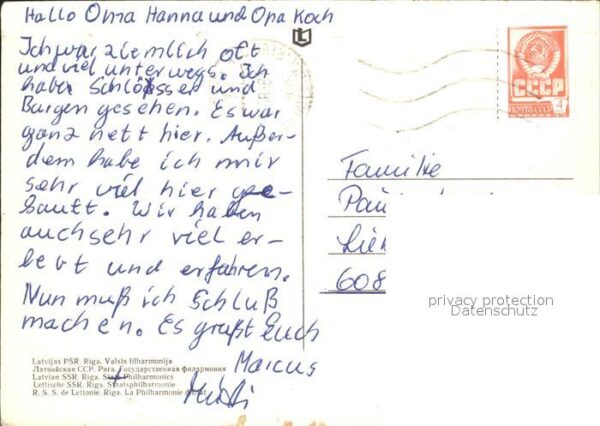 Hallo Oma Hanna und Opa Koch
Ich war ziemlich oft
und viel unterwegs. Ich
habe Schlösser und
Burgen gesehen. Es war
ganz nett hier. Außer-
dem habe ich mir
sehr viel hier ge-
kauft. Wir haben
auch sehr viel er-
lebt und erfahren.
Nun muß ich Schluß
machen. Es grüßt Euch
Marcus
CCCP
ПОЧТА СССР
4
Familie
608
privacy protection
Datenschutz
Latvijas PSR. Rīga. Valsts filharmonija
Латвийская ССР. Рига. Государственная филармония
Latvian SSR. Riga. State Philharmonics
Lettische SSR. Riga. Staatsphilharmonie
R. S. S. de Lettonie. Riga. La Philharmonie d'État